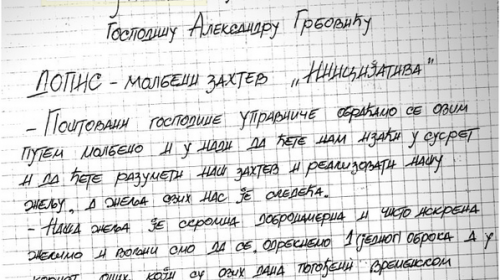 Господину Александру Грбовићу
ДОПИС - молбени захтев „Иницијатива"
- Поштовани господине управниче обраћамо се овим
путем молбено и у нади да ћете нам изаћи у сусрет
и да ћете разумети наш захтев и реализовати нашу
жељу, а жеља свих нас је следећа.
- Наша жеља је скромна добронамерна и чисто искрена
желимо и вољни смо да се одрекнемо 1(једног) оброка а у
корист оних који су ових дана погођени временском